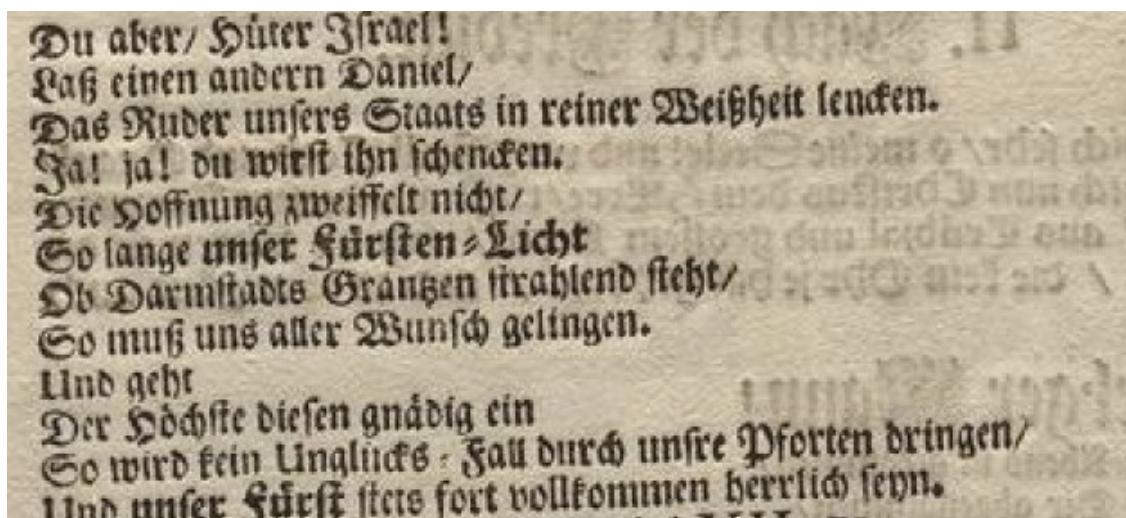 Du aber/ Hüter Iſrael!
Laß einen andern Daniel/
Das Ruder unſers Staats in reiner Weißheit lencken.
Ja! ja! du wirſt ihn ſchencken.
Die Hoffnung zweiffelt nicht/
So lange unſer Fürſten-Licht
Ob Darmſtadts Gräntzen ſtrahlend ſteht/
So muß uns aller Wunſch gelingen.
Und geht
Der Höchſte dieſen gnädig ein
So wird kein Unglücks-Fall durch unſre Pforten dringen/
Und unſer Fürſt ſtets fort vollkommen herrlich ſeyn.